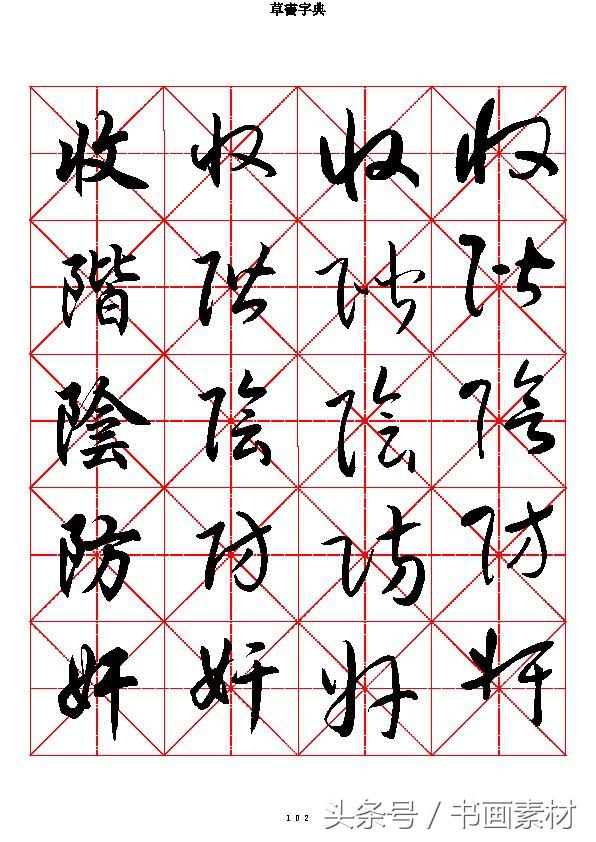 草書字典
收 收 收 收
階 階 階 階
陰 陰 陰 陰
防 防 防 防
奸 奸 奸 奸
102
头条号 / 书画素材